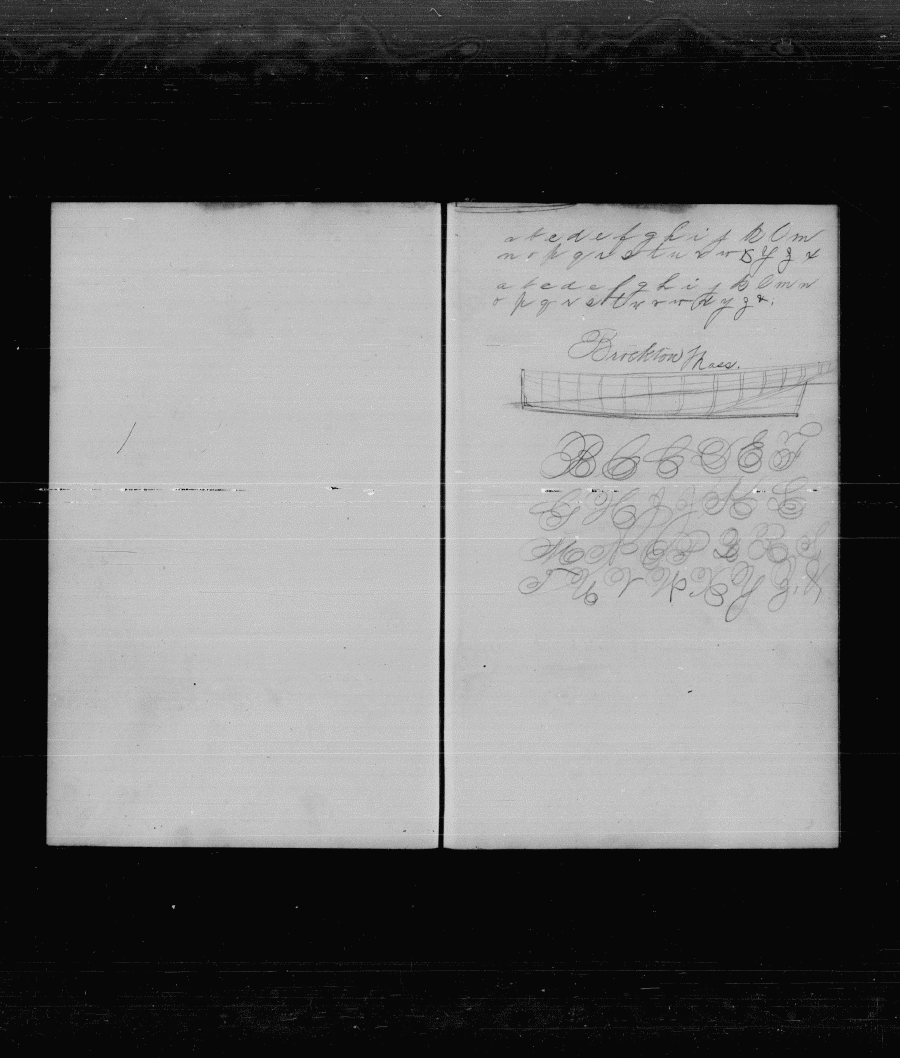 a b c d e f g h i j k l m
n o p q r s t u v w x y z &
a b c d e f g h i j k l m n
o p q r s t u v w x y z &.
Brockton Mass.
B C C D E F
G H I J K L
M N O P Q R S
T U V V W X Y Z &